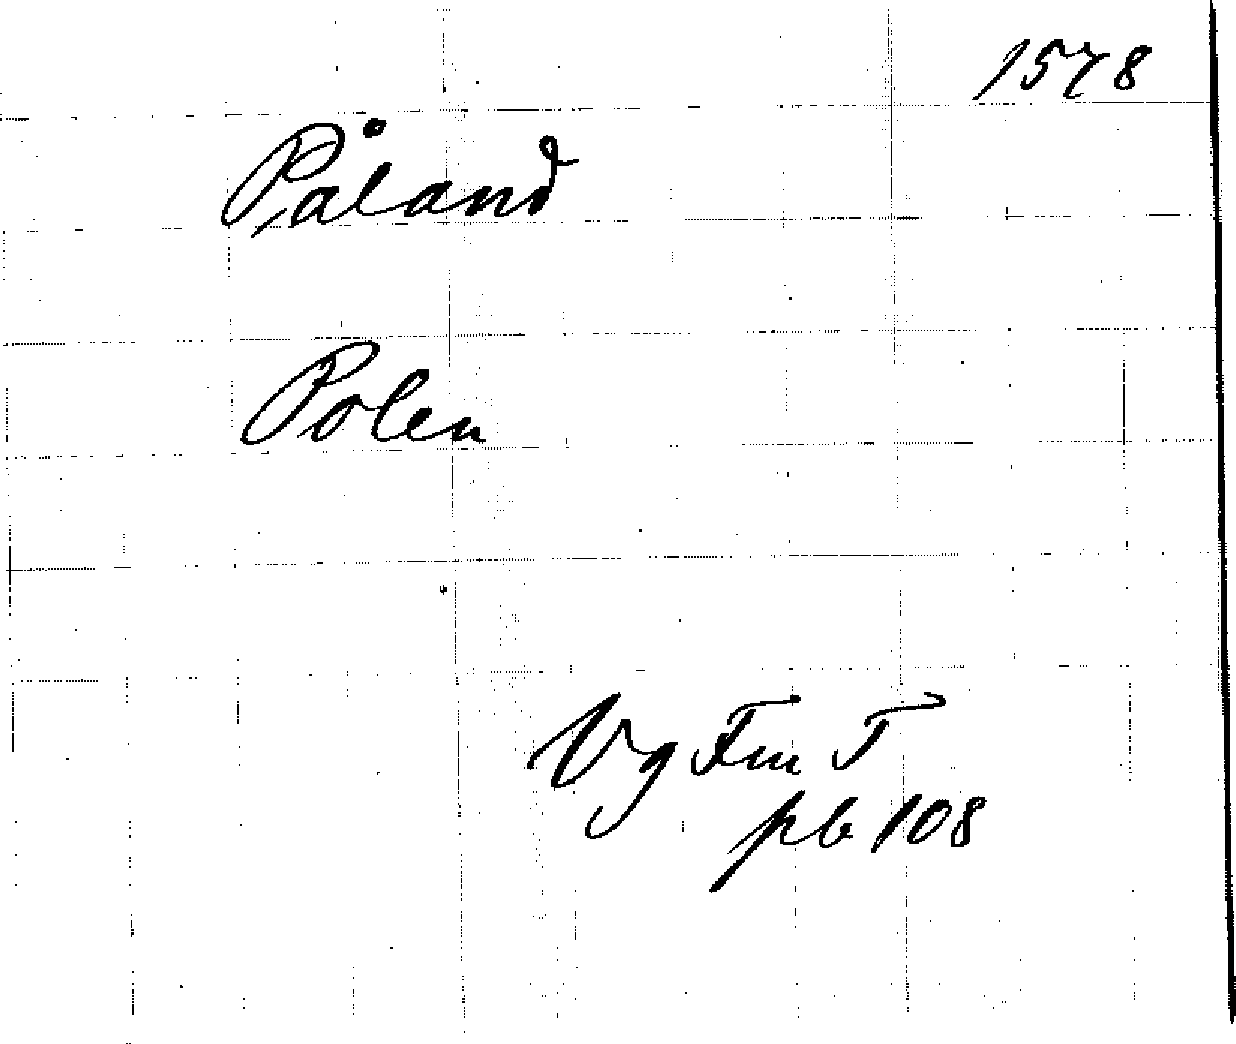 1578
Påland
Polen
Vg Fm T
pb 108